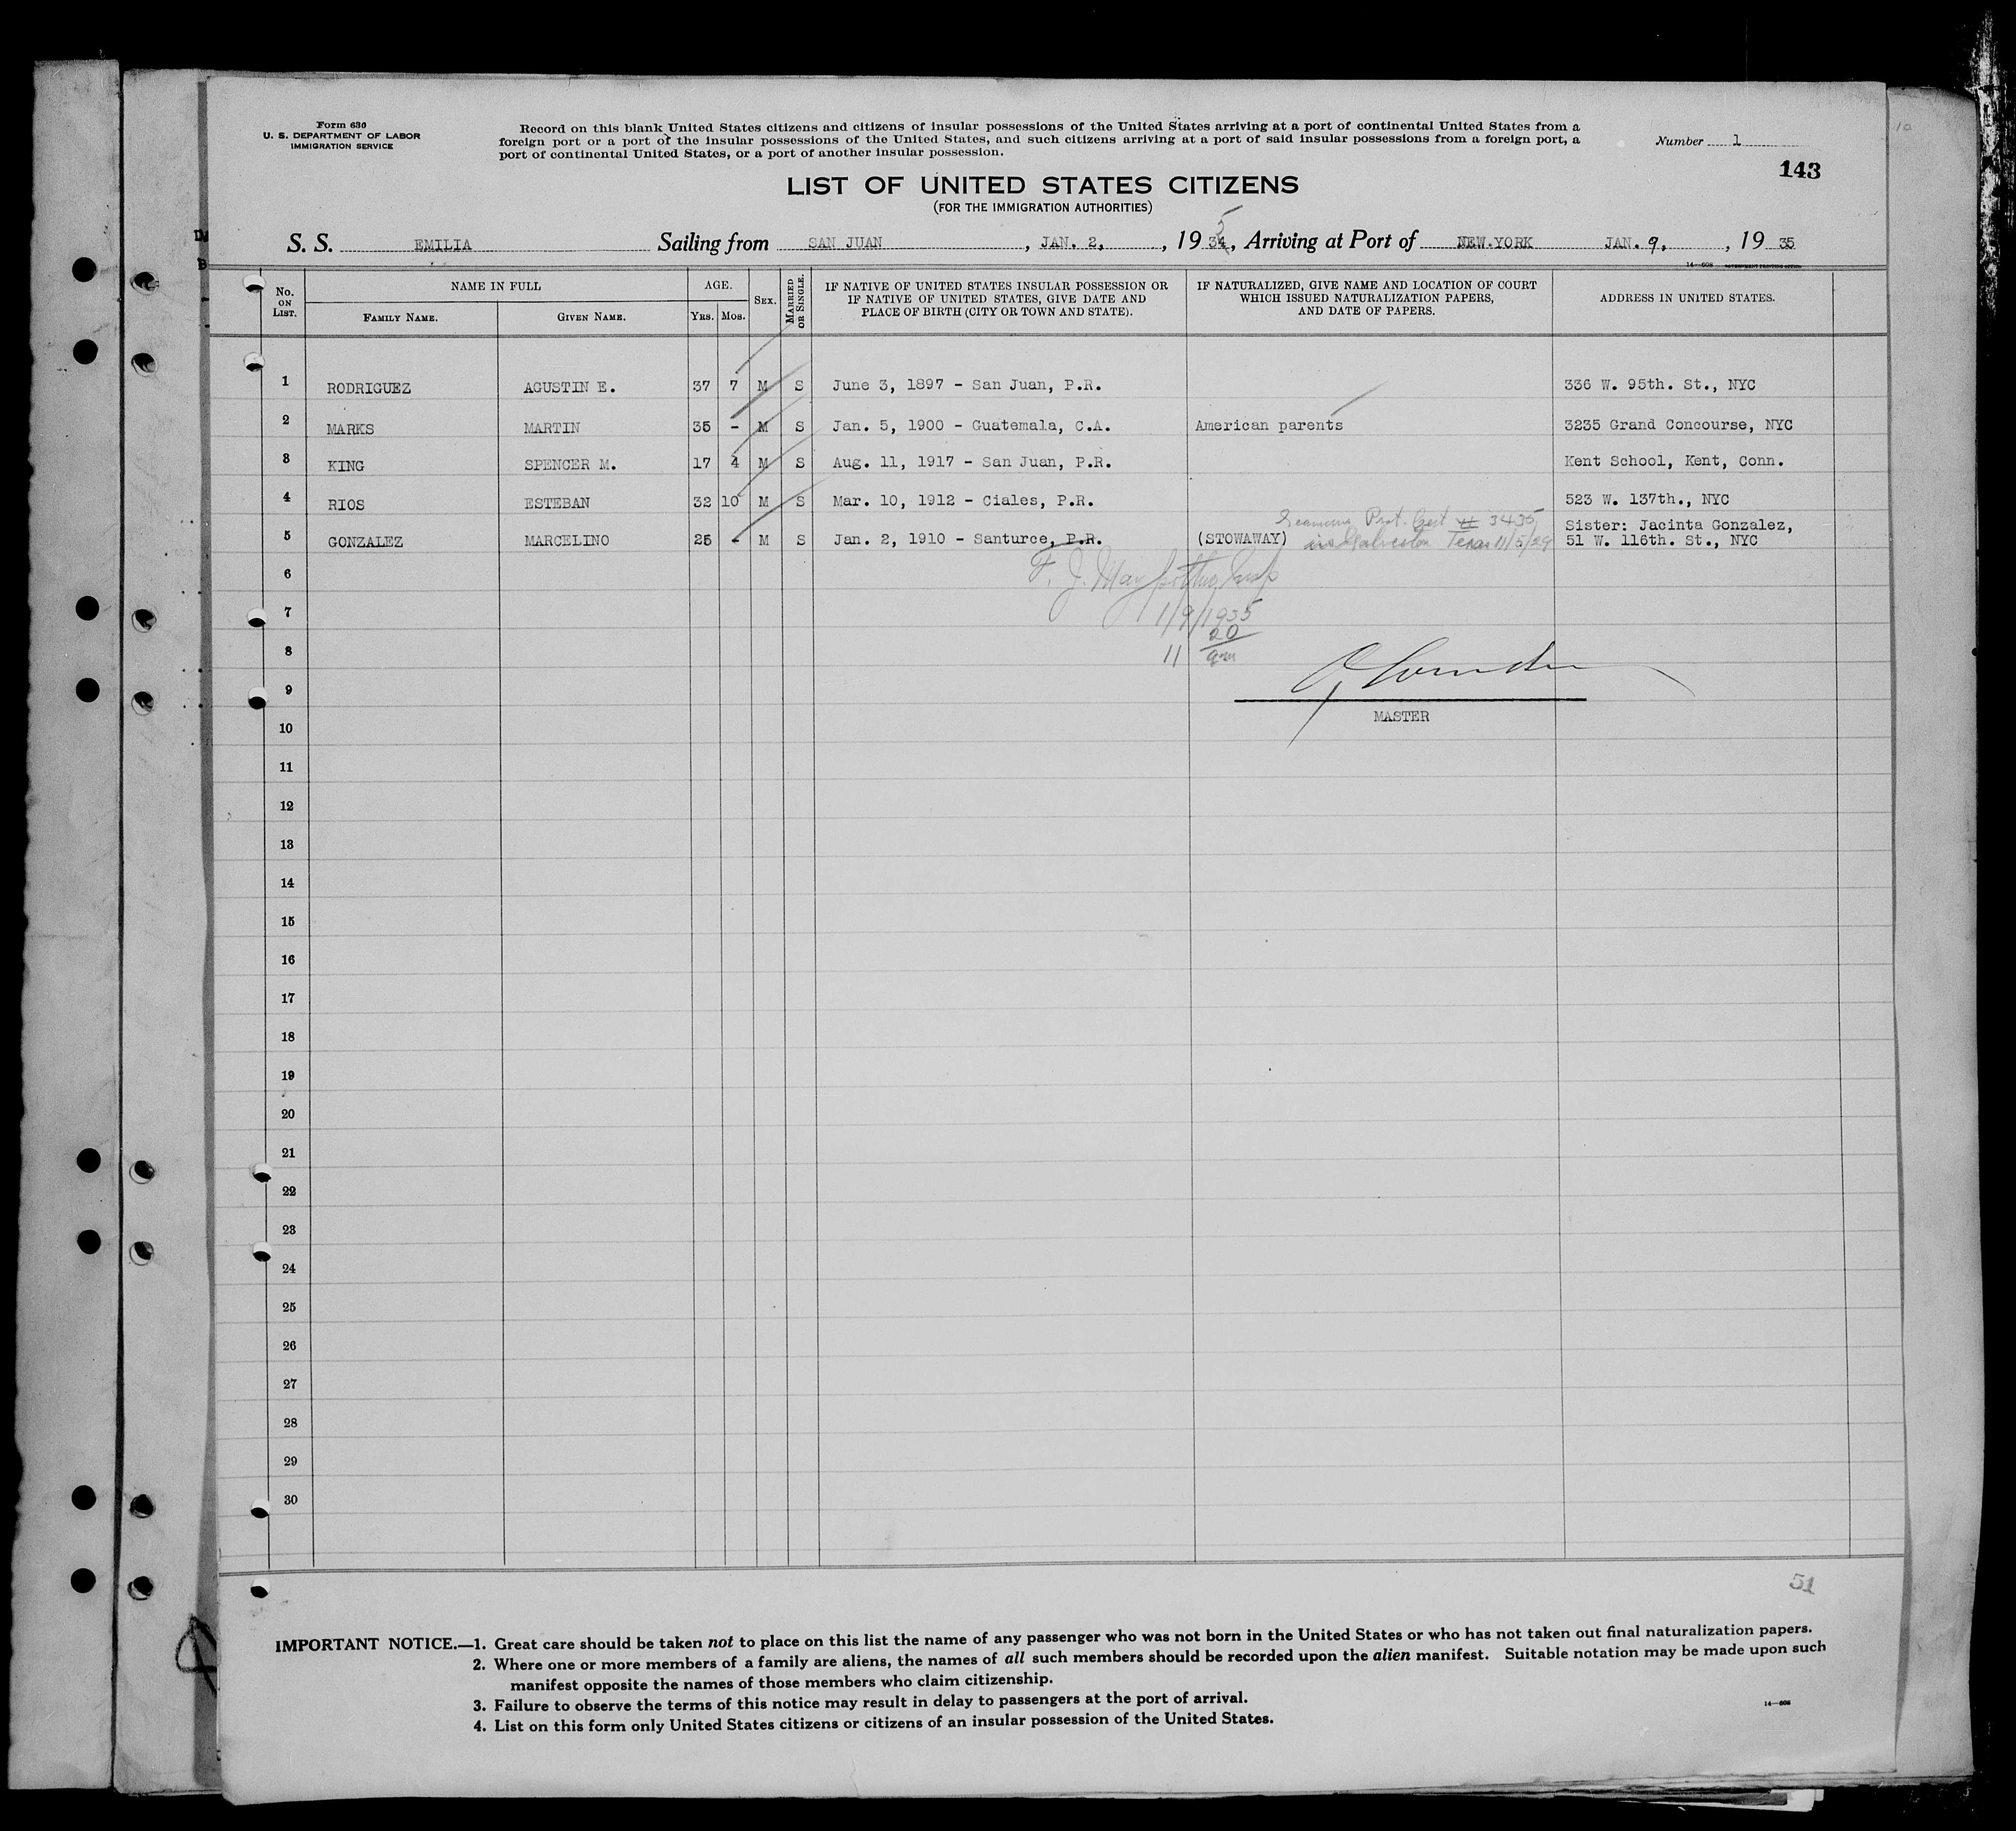 Form 630
U. S. DEPARTMENT OF LABOR
IMMIGRATION SERVICE
Record on this blank United States citizens and citizens of insular possessions of the United States arriving at a port of continental United States from a
foreign port or a port of the insular possessions of the United States, and such citizens arriving at a port of said insular possessions from a foreign port, a
port of continental United States, or a port of another insular possession.
Number 1
143
LIST OF UNITED STATES CITIZENS
(FOR THE IMMIGRATION AUTHORITIES)
S. S. EMILIA Sailing from SAN JUAN, JAN. 2, 1935, Arriving at Port of NEW YORK JAN. 9, 1935
14—608 GOVERNMENT PRINTING OFFICE
No. ON LIST. NAME IN FULL FAMILY NAME. GIVEN NAME. AGE. YRS. MOS. SEX. MARRIED OR SINGLE. IF NATIVE OF UNITED STATES INSULAR POSSESSION OR IF NATIVE OF UNITED STATES, GIVE DATE AND PLACE OF BIRTH (CITY OR TOWN AND STATE). IF NATURALIZED, GIVE NAME AND LOCATION OF COURT WHICH ISSUED NATURALIZATION PAPERS, AND DATE OF PAPERS. ADDRESS IN UNITED STATES.
1 RODRIGUEZ AGUSTIN E. 37 7 M S June 3, 1897 - San Juan, P.R. 336 W. 95th. St., NYC
2 MARKS MARTIN 35 - M S Jan. 5, 1900 - Guatemala, C.A. American parents 3235 Grand Concourse, NYC
3 KING SPENCER M. 17 4 M S Aug. 11, 1917 - San Juan, P.R. Kent School, Kent, Conn.
4 RIOS ESTEBAN 32 10 M S Mar. 10, 1912 - Ciales, P.R. 523 W. 137th., NYC
Seamens Prot. Cert # 3435 Sister: Jacinta Gonzalez,
5 GONZALEZ MARCELINO 25 - M S Jan. 2, 1910 - Santurce, P.R. (STOWAWAY) Galveston Texas 11/5/29 51 W. 116th. St., NYC
6
F. J. May
7
1/9/1935
8
11 20
am
9
MASTER
10
11
12
13
14
15
16
17
18
19
20
21
22
23
24
25
26
27
28
29
30
51
IMPORTANT NOTICE.—1. Great care should be taken not to place on this list the name of any passenger who was not born in the United States or who has not taken out final naturalization papers.
2. Where one or more members of a family are aliens, the names of all such members should be recorded upon the alien manifest. Suitable notation may be made upon such
manifest opposite the names of those members who claim citizenship.
3. Failure to observe the terms of this notice may result in delay to passengers at the port of arrival.
4. List on this form only United States citizens or citizens of an insular possession of the United States.
14—608